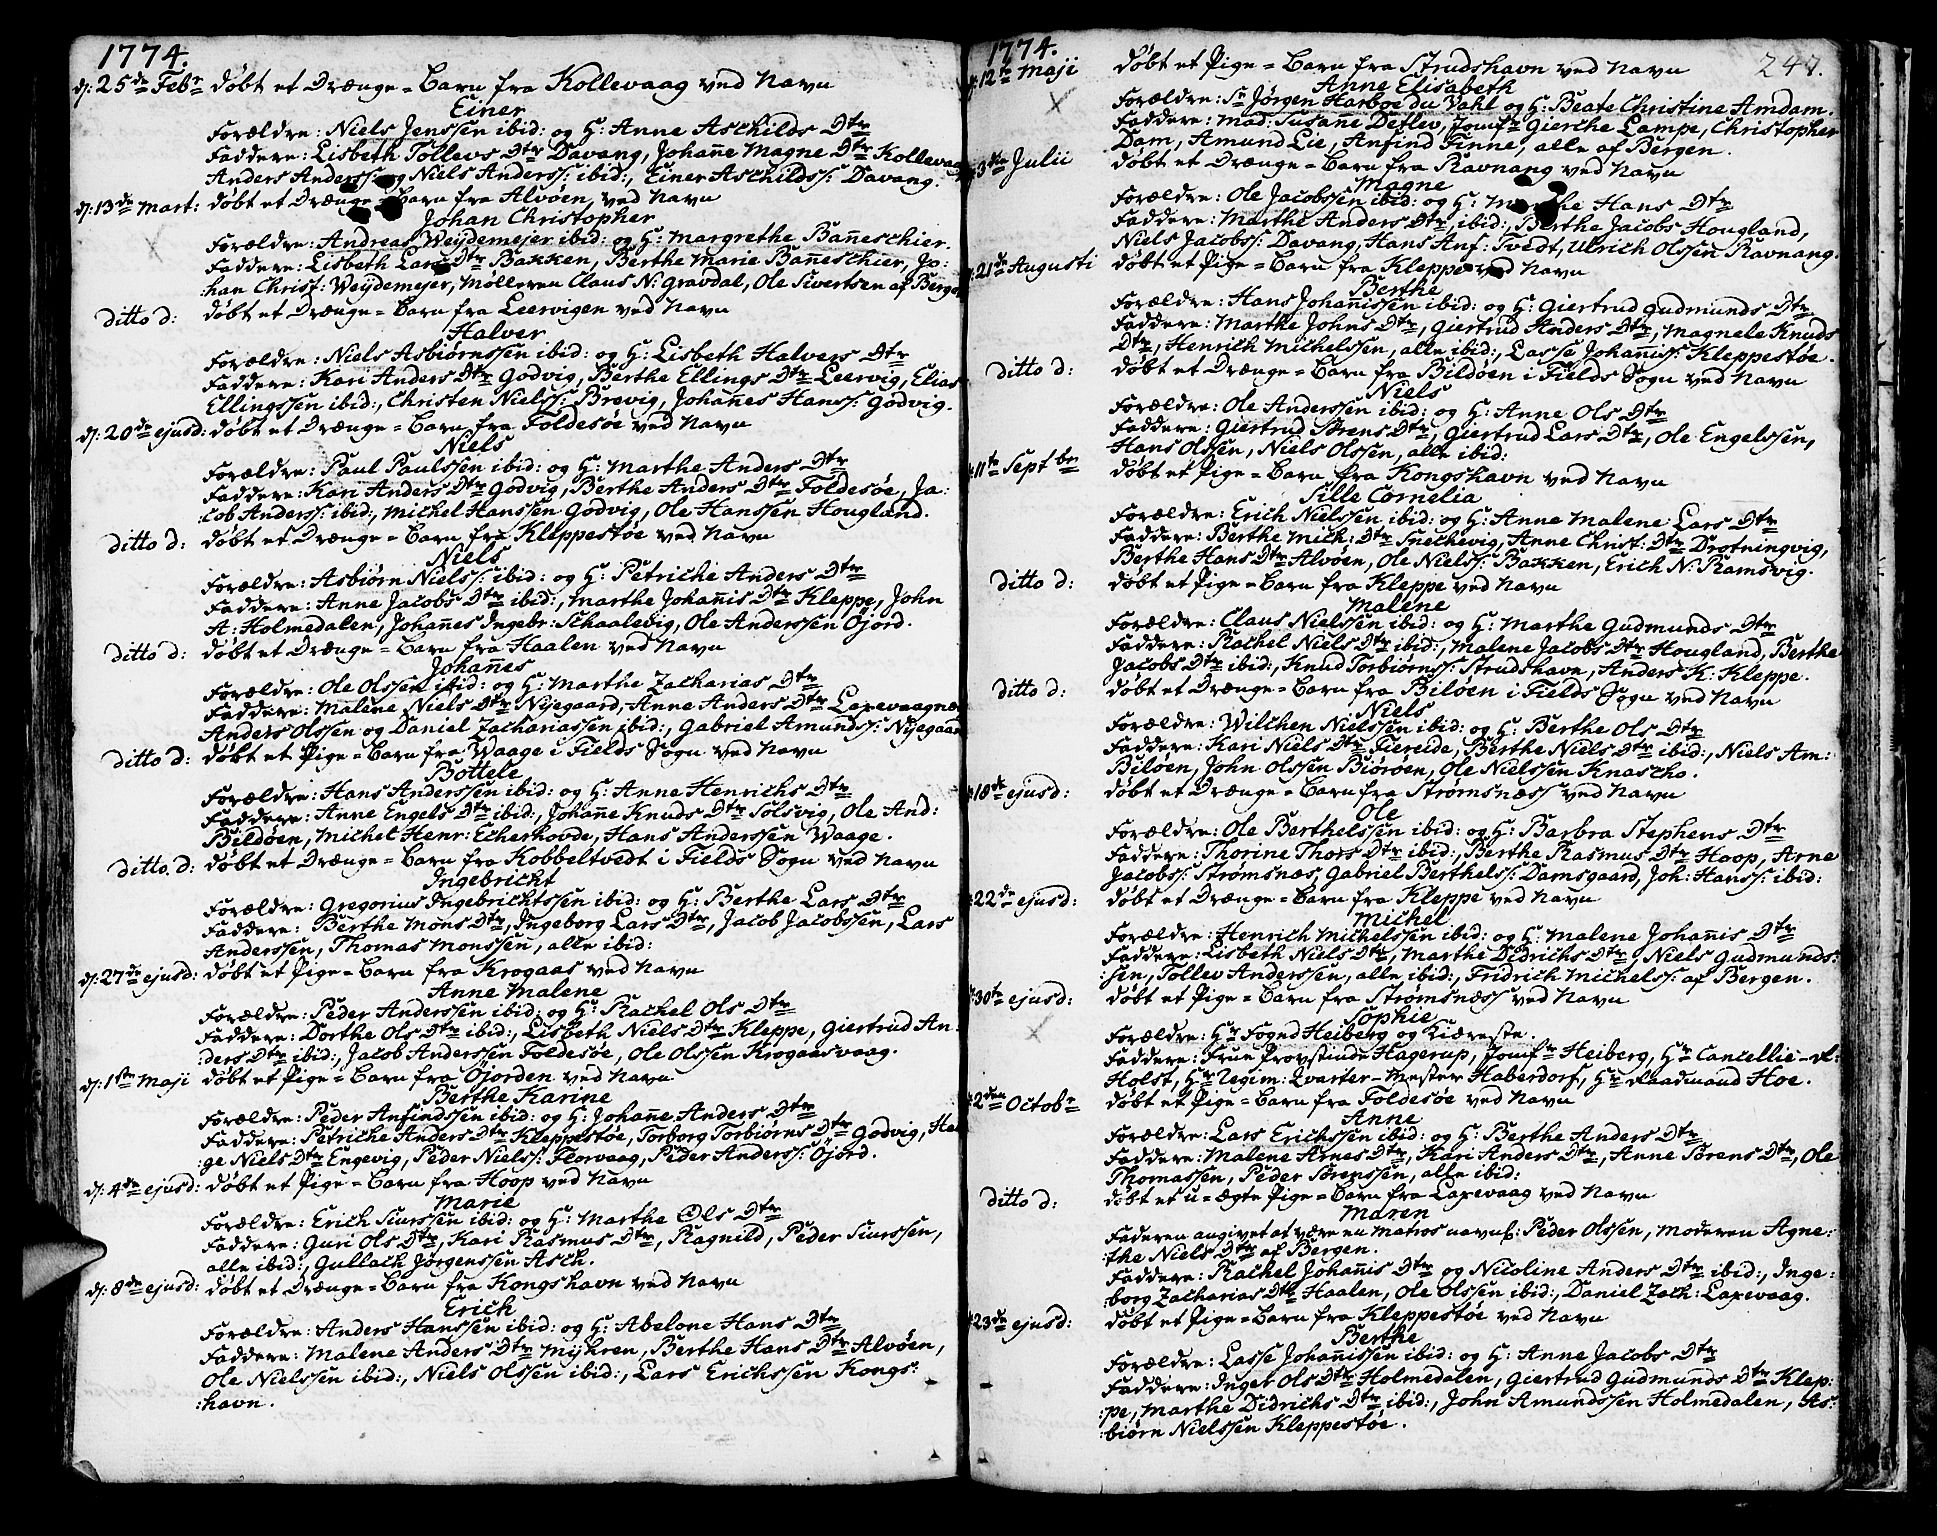 1774.
d: 25de Febr døbt et Drænge-Barn fra Kollevaag ved Navn
Einer
Forældre: Niels Jenssen ibid: og H: Anne Aschilds Dtr
Faddere: Lisbeth Tollevs Dtr Davang, Johañe Magne Dtr Kollevaag
Anders Anderss: og Niels Anderss: ibid:, Einer Aschildss: Davang.
d: 13de Mart: døbt et Drænge-Barn fra Alvøen, ved Navn
Johan Christopher
Forældre: Andreas Weijdemejer ibid: og H: Margrethe Bañeschier.
Faddere: Lisbeth Lars Dtr Bakken, Berthe Marie Bañeschier, Jo:
:han Christ: Weijdemejer, Mølleren Claus N: Gravdal, Ole Sivertsen af Bergen
ditto d: døbt et Drænge-Barn fra Leervigen ved Navn
Halver
Forældre: Niels Asbiørnssen ibid: og H: Lisbeth Halvers Dtr
Faddere: Kari Anders Dtr Godvig, Berthe Ellings Dtr Leervig, Elias
Ellingssen ibid:, Christen Nielss: Brevig, Johañes Hanss: Godvig.
d: 20de ejusd: døbt et Drænge-Barn fra Foldesøe ved Navn
Niels
Forældre: Paul Paulssen ibid: og H: Marthe Anders Dtr
Faddere: Kari Anders Dtr Godvig, Berthe Anders Dtr Foldesøe, Ja:
:cob Anderss: ibid:, Michel Hanssen Godvig, Ole Hanssen Hougland.
ditto d: døbt et Drænge-Barn fra Kleppestøe ved Navn
Niels
Forældre: Asbiørn Nielss: ibid: og H: Petriche Anders Dtr
Faddere: Anne Jacobs Dtr ibid:, Marthe Johañis Dtr Kleppe, John
A: Holmedalen, Johañes Ingebr: Schaalevig, Ole Anderssen Öjord.
ditto d: døbt et Drænge-Barn fra Haalen ved Navn
Johañes
Forældre: Ole Olssen ibid: og H: Marthe Zacharias Dtr
Faddere: Malene Niels Dtr Nijegaard, Anne Anders Dtr Laxevaagnæs
Anders Olssen og Daniel Zachariassen ibid:, Gabriel Amundss: Nijegaard
ditto d: døbt et Pige-Barn fra Waage i Fields Sogn ved Navn
Bottele
Forældre: Hans Anderssen ibid: og H: Anne Henrichs Dtr
Faddere: Anne Engels Dtr ibid:, Johañe Knuds Dtr Solsvig, Ole And:
Bildøen, Michel Henr: Echerhovde, Hans Anderssen Waage.
ditto d: døbt et Drænge-Barn fra Kobbeltvedt i Fields Sogn ved Navn
Ingebricht
Forældre: Gregorius Ingebrichtssen ibid: og H: Berthe Lars Dtr
Faddere: Berthe Mons Dtr, Ingeborg Lars Dtr, Jacob Jacobssen, Lars
Anderssen, Thomas Monssen, alle ibid:
d: 27de ejusd: døbt et Pige-Barn fra Krogaas ved Navn
Anne Malene
Forældre: Peder Anderssen ibid: og H: Rachel Ols Dtr
Faddere: Dorthe Ols Dtr ibid:, Lisbeth Niels Dtr Kleppe, Giertrud An:
ders Dtr ibid:, Jacob Anderssen Foldesøe, Ole Olssen Krogaasvaag.
d: 1ste Maji døbt et Pige-Barn fra Öjorden ved Navn
Berthe Karine
Forældre: Peder Anfindssen ibid: og H: Johañe Anders Dtr
Faddere: Petriche Anders Dtr Kleppestøe, Torborg Torbiørns Dtr Godvig, Hel
:ge Niels Dtr Engevig, Peder Nielss: Florvaag, Peder Anderss: Öjord.
d: 4de ejusd: døbt et Pige-Barn fra Hoop ved Navn
Marie
Forældre: Erich Siurssen ibid: og H: Marthe Ols Dtr
Faddere: Guri Ols Dtr, Kari Rasmus Dtr, Ragnild, Peder Siurssen,
alle ibid:, Gullach Jørgenssen Asch.
d: 8de ejusd: døbt et Drænge-Barn fra Kongshavn ved Navn
Erich
Forældre: Anders Hanssen ibid: og H: Abelone Hans Dtr
Faddere: Malene Anders Dtr Mijhren, Berthe Hans Dtr Alvøen,
Ole Nielssen ibid:, Niels Olssen ibid:, Lars Erichssen Kongs:
:havn.
1774. 247.
12te Maji døbt et Pige-Barn fra Strudshavn ved Navn
Anne Elisabeth
Forældre: Sr Jørgen Harboe du Vahl og H: Beate Christine Amdam.
Faddere: Mad: Susañe Detlev, Jomfr Gierche Lampe, Christopher
Dam, Amund Lie, Anfind Finne, alle af Bergen.
3die Julii døbt et Drænge-Barn fra Ravnang ved Navn
Magne
Forældre: Ole Jacobssen ibid: og H: Marthe Hans Dtr
Faddere: Marthe Anders Dtr, ibid:, Berthe Jacobs Hougland,
Niels Jacobss: Davang, Hans Anf: Tvedt, Ulrich Olssen Ravnang.
21de Augusti døbt et Pige-Barn fra Kleppe ved Navn
Berthe
Forældre: Hans Johañissen ibid: og H: Giertrud Gudmunds Dtr
Faddere: Marthe Johns Dtr, Giertrud Anders Dtr, Magnele Knuds
Dtr, Henrich Michelssen, alle ibid:, Lasse Johañiss: Kleppestøe.
ditto d: døbt et Drænge-Barn fra Bildøen i Fields Sogn ved Navn
Niels
Forældre: Ole Anderssen ibid: og H: Anne Ols Dtr
Faddere: Giertrud Sørens Dtr, Giertrud Lars Dtr, Ole Engelssen,
Hans Olssen, Niels Olssen, alle ibid:
11te Septbr døbt et Pige-Barn fra Kongshavn ved Navn
Sille Cornelia
Forældre: Erich Nielssen ibid: og H: Anne Malene Lars Dtr
Faddere: Berthe Mich: Dtr Snechevig, Anne Christ: Dtr Drotningvig,
Berthe Hans Dtr Alvøen, Ole Nielss: Bakken, Erich N: Ramsvig.
ditto d: døbt et Pige-Barn fra Kleppe ved Navn
Malene
Forældre: Claus Nielssen ibid: og H: Marthe Gudmunds Dtr
Faddere: Rachel Niels Dtr ibid:, Malene Jacobs Dtr Hougland, Berthe
Jacobs Dtr ibid:, Knud Torbiørnss: Strudshavn, Anders K: Kleppe.
ditto d: døbt et Drænge-Barn fra Biløen i Fields Sogn ved Navn
Niels
Forældre: Wilchen Nielssen ibid: og H: Berthe Ols Dtr
Faddere: Kari Niels Dtr Fiereide, Berthe Niels Dtr ibid:, Niels Am:
Biløen, John Olssen Biórøen, Ole Nielssen Knascho.
18de ejusd: døbt et Drænge-Barn fra Strømsnæss ved Navn
Ole
Forældre: Ole Berthelssen ibid: og H: Barbra Stephens Dtr
Faddere: Thorine Thors Dtr ibid:, Berthe Rasmus Dtr Hoop, Arne
Jacobss: Strømsnæs, Gabriel Berthelss: Damsgaard, Joh: Hanss: ibid:
22de ejusd: døbt et Drænge-Barn fra Kleppe ved Navn
Michel
Forældre: Henrich Michelssen ibid: og H: Malene Johañis Dtr
Faddere: Lisbeth Niels Dtr, Marthe Didrichs Dtr, Niels Gudmunds:
:sen, Tollev Anderssen, alle ibid:, Fridrich Michelss: af Bergen.
30te ejusd: døbt et Pige-Barn fra Strømsnæss ved Navn
Sophie
Forældre: Hr Fogd Heiberg og Kiæreste.
Faddere: Frue Provstinde Hagerup, Jomfr Heiberg, Hr Cancellie-
Holst, Hr Regim: Qvarter-Mester Haberdorf, Hr Raadmand Hoe.
2den Octobr døbt et Pige-Barn fra Foldesøe ved Navn
Anne
Forældre: Lars Erichssen ibid: og H: Berthe Anders Dtr
Faddere: Malene Arnes Dtr, Kari Anders Dtr, Anne Sørens Dtr, Ole
Thomassen, Peder Sørenssen, alle ibid:
ditto d: døbt et u-ægte Pige-Barn fra Laxevaag ved Navn
Maren
Faderen angivet at være en Matros navnl: Peder Olssen, Moderen Agne:
:the Niels Dtr af Bergen.
Faddere: Rachel Johañis Dtr og Nicoline Anders Dtr ibid:, Inge:
:borg Zacharias Dtr Haalen, Ole Olssen ibid:, Daniel Zach: Laxevaag.
23de ejusd: døbt et Pige-Barn fra Kleppestøe ved Navn
Berthe
Forældre: Lasse Johañissen ibid: og H: Anne Jacobs Dtr
Faddere: Inget Ols Dtr Holmedalen, Giertrud Gudmunds Dtr Klep:
:pe, Marthe Didrichs Dtr ibid:, John Amundssen Holmedalen, As:
:biørn Nielssen Kleppestøe.